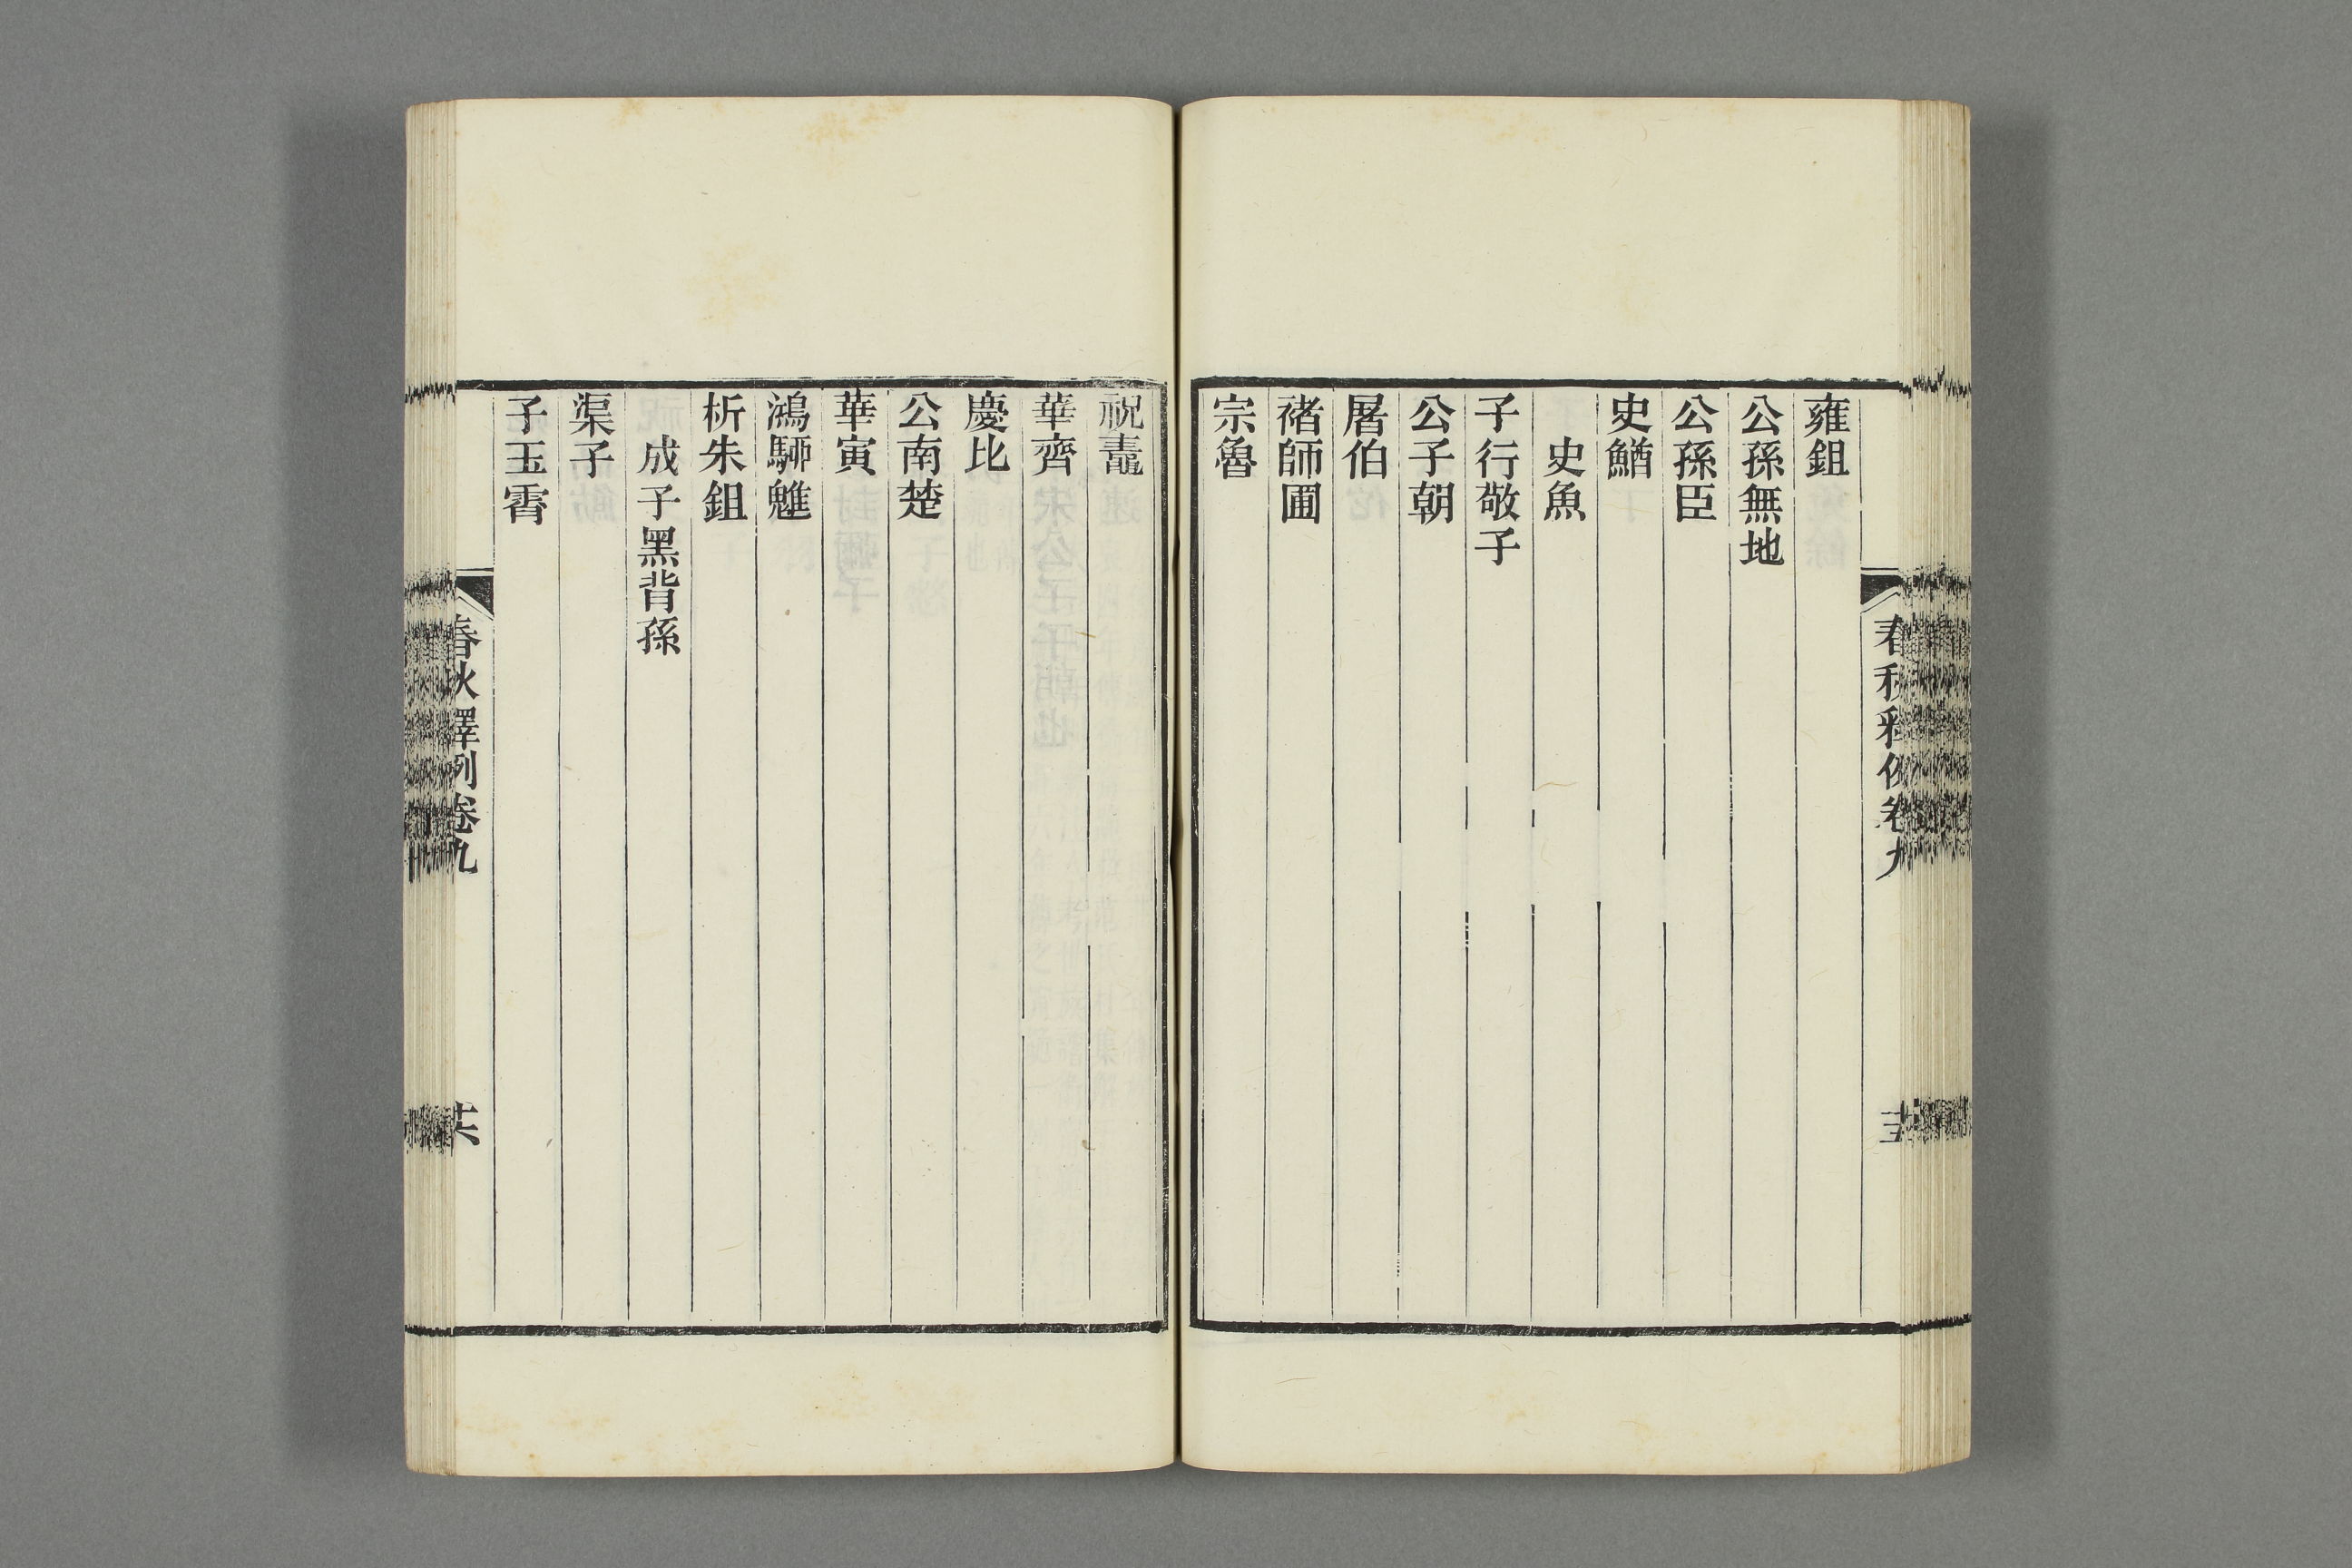 雍鉏
公孫無地
公孫臣
史鰌
史魚
子行敬子
公子朝
屠伯
褚師圃
宗魯
祝鼃
華齊
慶比
公南楚
華寅
鴻駵魋
析朱鉏
成子黑背孫
渠子
子玉霄
春秋釋例卷九